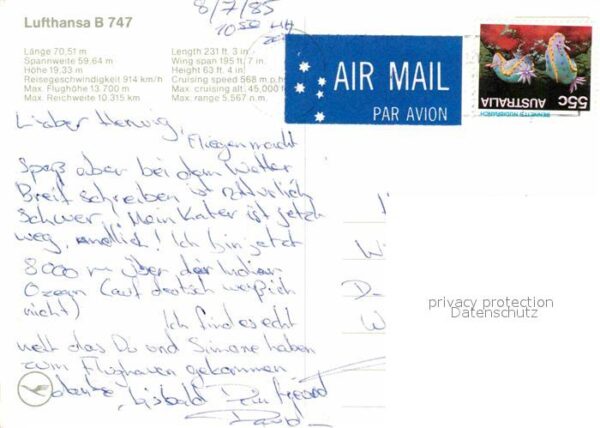 Lufthansa B 747
Länge 70,51 m
Spannweite 59,64 m
Höhe 19,33 m
Reisegeschwindigkeit 914 km/h
Max. Flughöhe 13.700 m
Max. Reichweite 10.315 km
Length 231 ft. 3 in.
Wing span 195 ft. 7 in.
Height 63 ft. 4 in.
Cruising speed 568 m.p.h.
Max. cruising alt. 45,000 f
Max. range 5.567 n.m.
8/7/85
10 50
AIR MAIL
PAR AVION
AUSTRALIA 55c
BENNETT'S NUDIBRANCH
Lieber Herwig,
Fliegen macht
Spaß aber bei dem Wetter
Breif schreiben ist natürlich
schwer. Mein Kater ist jetzt
weg, endlich! Ich bin jetzt
8000 m über der Indian
Ozean (auf deutsch weiß ich
nicht)
Ich find es echt
nett das Du und Simone haben
zum Flughaven gekommen
bis bald Dein Freund
David
privacy protection
Datenschutz